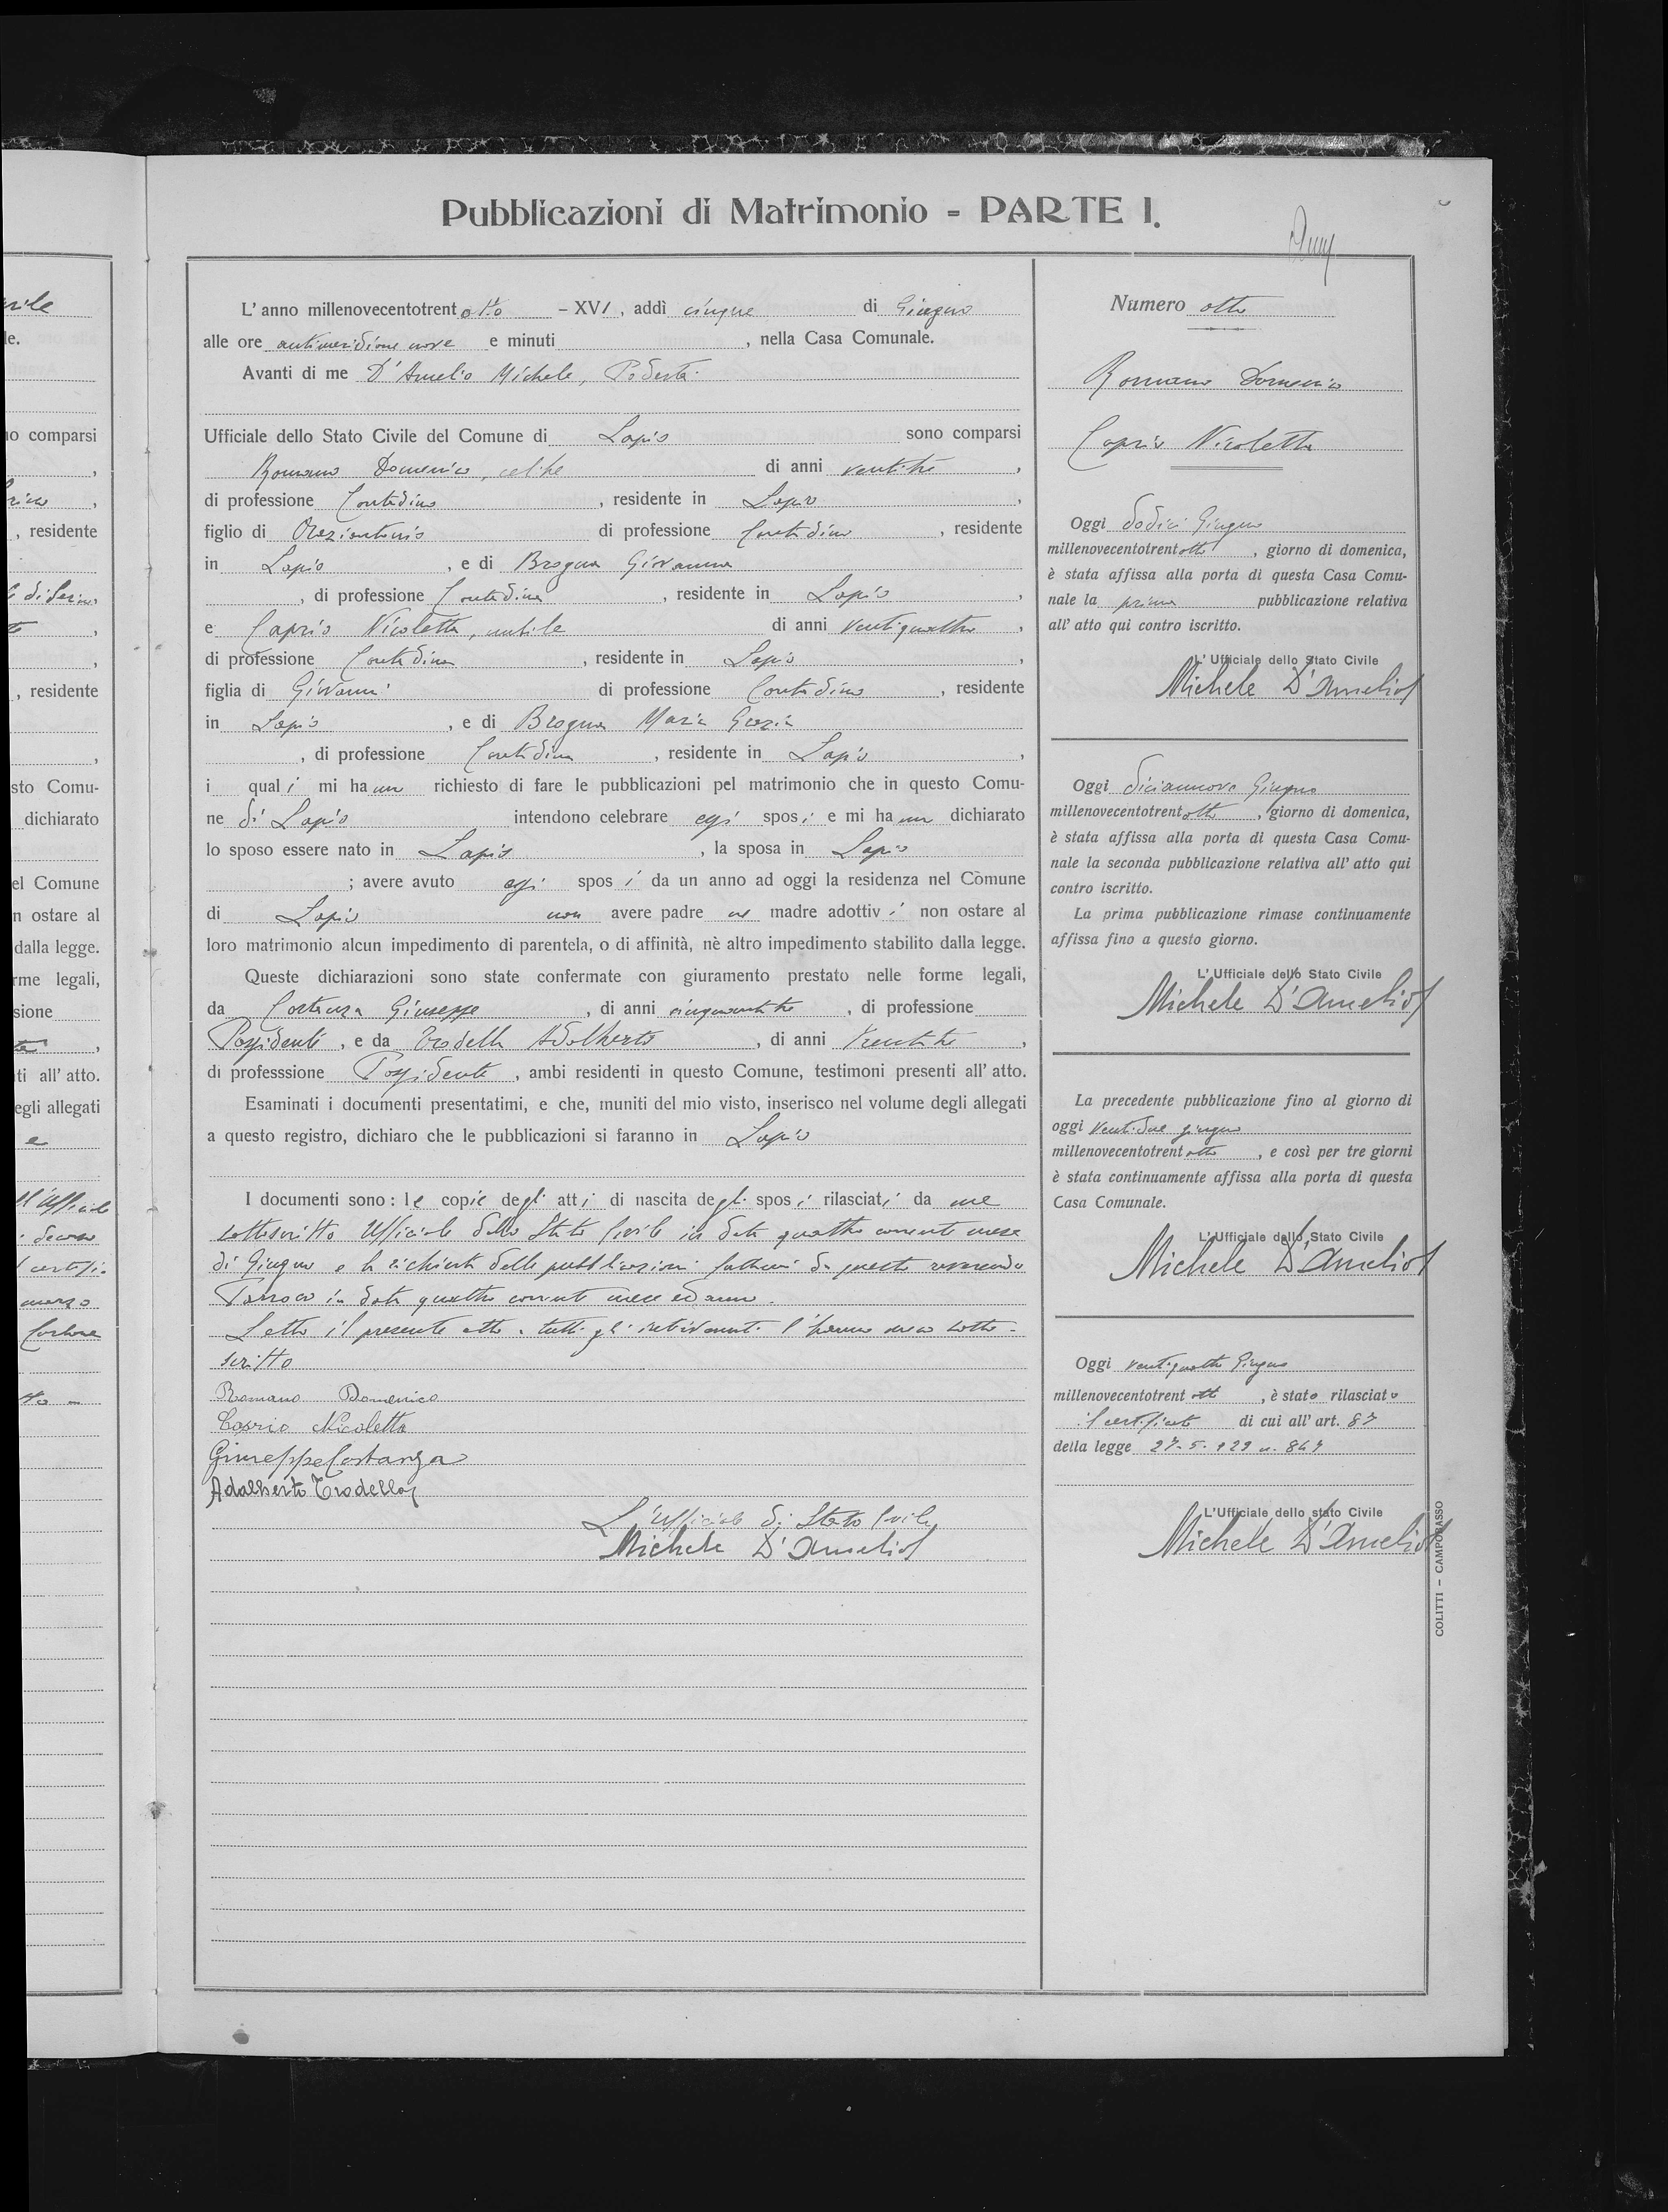 Pubblicazioni di Matrimonio - PARTE I.
L' anno millenovecentotrent otto - XVI, addì cinque di Giugno
alle ore antimeridiane nove e minuti , nella Casa Comunale.
Avanti di me D'Amelio Michele, Podestà
Ufficiale dello Stato Civile del Comune di Lapio sono comparsi
Romano Domenico, celibe di anni ventitre ,
di professione Contadino , residente in Lapio ,
figlio di Oraziantonio di professione Contadino , residente
in Lapio , e di Brogna Giovanna
, di professione Contadina , residente in Lapio ,
e Caprio Nicoletta, nubile di anni ventiquattro ,
di professione Contadina , residente in Lapio ,
figlia di Giovanni di professione Contadino , residente
in Lapio , e di Brogna Maria Grazia
, di professione Contadina , residente in Lapio ,
i quali mi hanno richiesto di fare le pubblicazioni pel matrimonio che in questo Comu-
ne di Lapio intendono celebrare essi sposi e mi hanno dichiarato
lo sposo essere nato in Lapio , la sposa in Lapio
; avere avuto essi sposi da un anno ad oggi la residenza nel Comune
di Lapio non avere padre ne madre adottivi non ostare al
loro matrimonio alcun impedimento di parentela, o di affinità, nè altro impedimento stabilito dalla legge.
Queste dichiarazioni sono state confermate con giuramento prestato nelle forme legali,
da Costanza Giuseppe , di anni cinquantatre , di professione
Possidente , e da Trodella Adalberto , di anni trentatre ,
di professsione Possidente , ambi residenti in questo Comune, testimoni presenti all' atto.
Esaminati i documenti presentatimi, e che, muniti del mio visto, inserisco nel volume degli allegati
a questo registro, dichiaro che le pubblicazioni si faranno in Lapio
I documenti sono: le copie degli atti di nascita degli sposi rilasciati da me
sottoscritto Ufficiale dello Stato Civile in data quattro corrente mese
di Giugno e la richiesta delle pubblicazioni fattami da questo reverendo
Parroco in data quattro corrente mese ed anno.
Letto il presente atto a tutti gli intervenuti l'hanno meco sotto-
scritto
Romano Domenico
Caprio Nicoletta
Giuseppe Costanza
Adalberto Trodella
L'Ufficiale di Stato Civile
Michele D'Amelio
Numero otto
Romano Domenico
Caprio Nicoletta
Oggi dodici Giugno
millenovecentotrentotto , giorno di domenica,
è stata affissa alla porta di questa Casa Comu-
nale la prima pubblicazione relativa
all' atto qui contro iscritto.
L' Ufficiale dello Stato Civile
Michele D'Amelio
Oggi diciannove Giugno
millenovecentotrentotto , giorno di domenica,
è stata affissa alla porta di questa Casa Comu-
nale la seconda pubblicazione relativa all' atto qui
contro iscritto.
La prima pubblicazione rimase continuamente
affissa fino a questo giorno.
L' Ufficiale dello Stato Civile
Michele D'Amelio
La precedente pubblicazione fino al giorno di
oggi ventidue giugno
millenovecentotrentotto , e così per tre giorni
è stata continuamente affissa alla porta di questa
Casa Comunale.
L' Ufficiale dello Stato Civile
Michele D'Amelio
Oggi ventiquattro Giugno
millenovecentotrent otto , è stato rilasciato
il certificato di cui all' art. 87
della legge 27-5-929 n. 847
L'Ufficiale dello stato Civile
Michele D'Amelio
COLITTI - CAMPOBASSO